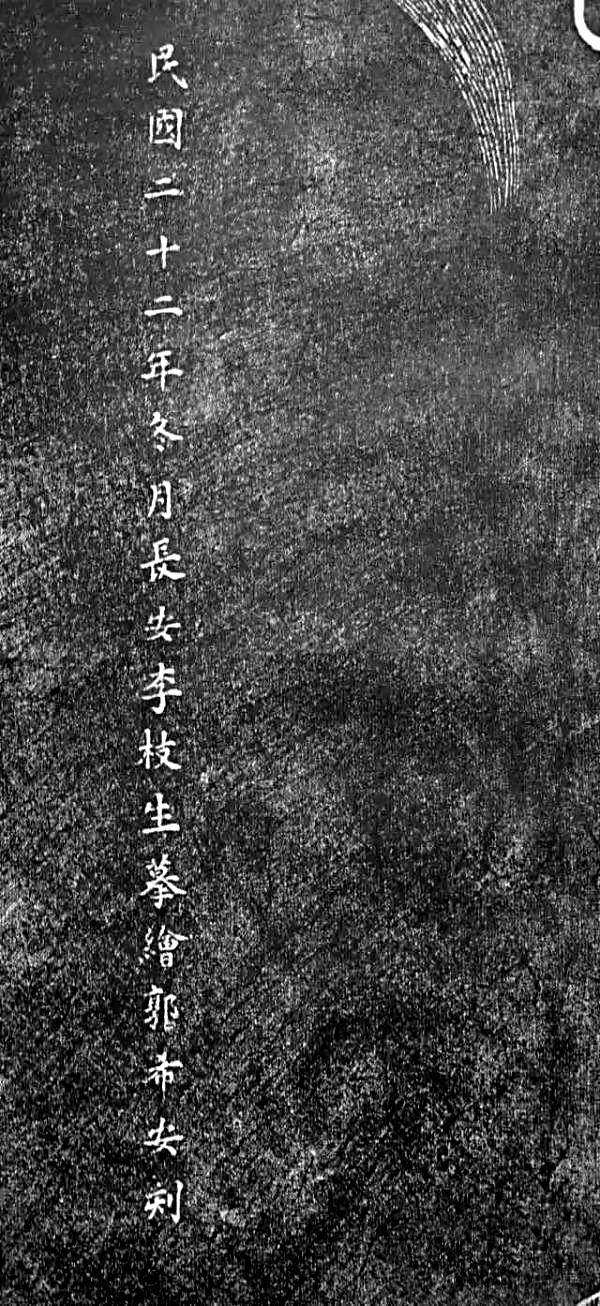 民國二十二年冬月長安李枝生摹繪郭希安刻